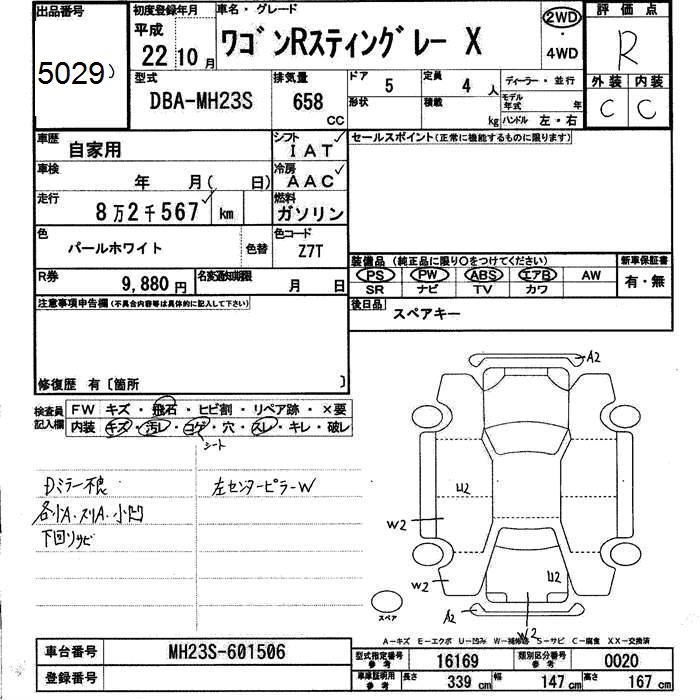 出品番号
5029
初度登録年月
平成
22年10月
車名・グレード
ワゴンRスティングレー X
2WD
・
4WD
評価点
R
外装 内装
C C
型式
DBA-MH23S
排気量
658
CC
ドア
5
定員
4人
ディーラー・並行
形状
積載
kg
モデル年式 年
ハンドル 左・右
車歴
自家用
シフト
IAT
セールスポイント(正常に機能するものに限ります)
車検
年 月( 日)
冷房
AAC
走行
8万2千567 km
燃料
ガソリン
色
パールホワイト
色替
色コード
Z7T
装備品 (純正品に限り○をつけてください)
新車保証書
PS PW ABS エアB AW
SR ナビ TV カワ
有・無
R券
9,880円
名変通知期限
月 日
後日品
スペアキー
注意事項申告欄(不具合内容等は具体的に記入して下さい)
修復歴 有〔箇所 〕
検査員記入欄
FW キズ・飛石・ヒビ割・リペア跡・×要
内装 キズ・汚レ・コゲ・穴・スレ・キレ・破レ
シート
Dミラー不良
左センターピラーW
各小A・スリA・小凹
下回りサビ
A2
U2
W2
W2
U2
A2
W2
スペア
A-キズ E-エクボ U-凹み W-補修跡 S-サビ C-腐食 XX-交換済
車台番号
MH23S-601506
型式指定番号
参考
16169
類別区分番号
参考
0020
登録番号
車庫証明用
参考
長さ
339 cm
幅
147 cm
高さ
167 cm